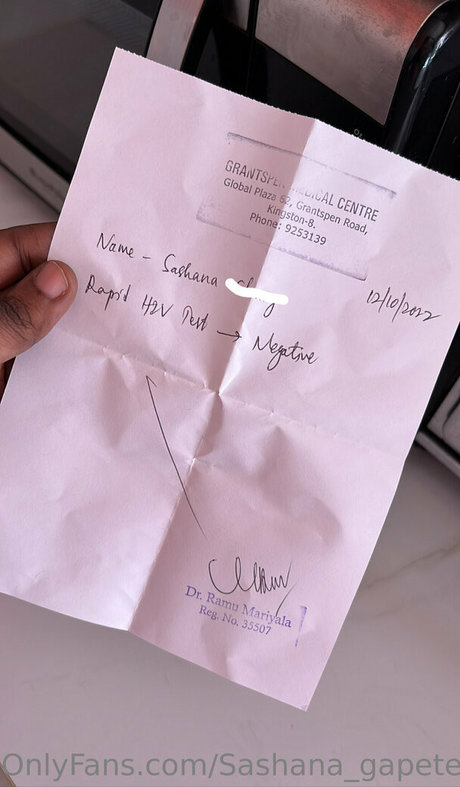 GRANTSPEN MEDICAL CENTRE
Global Plaza 62, Grantspen Road,
Kingston-8.
Phone: 9253139
Name - Sashana
12/10/2022
Rapid HIV Test → Negative
Dr. Ramu Mariyala
Reg. No. 35507
OnlyFans.com/Sashana_gapete